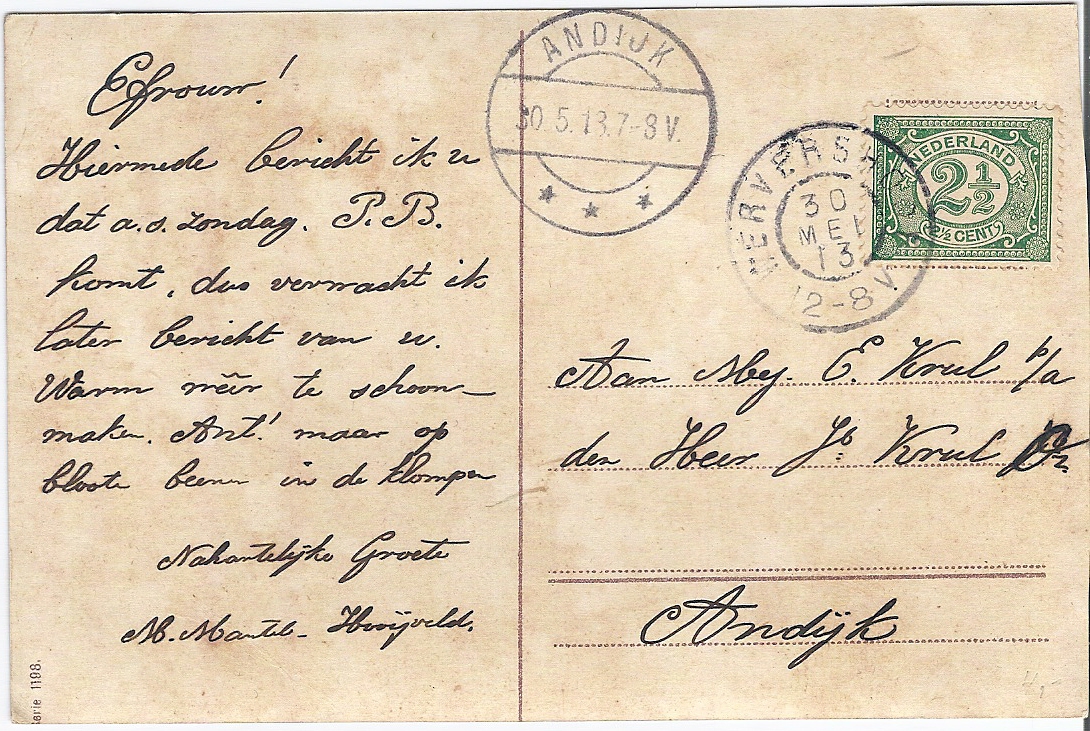 Efrouw!
Hiermede bericht ik u
dat a.s. zondag. P. B.
komt, dus verwacht ik
later bericht van u.
Warm wêêr te schoon-
maken. Ant! maar op
bloote beenen in de klompen
Nahartelijke Groete
M. Mantel-
ANDIJK
30.5.13.7-8V.
30
MEI
13
12-8V
NEDERLAND
2½
2½ CENT
Aan Mej. E. Krul p/a
den Heer Jb Krul
Andijk
Serie 1198.
4,-